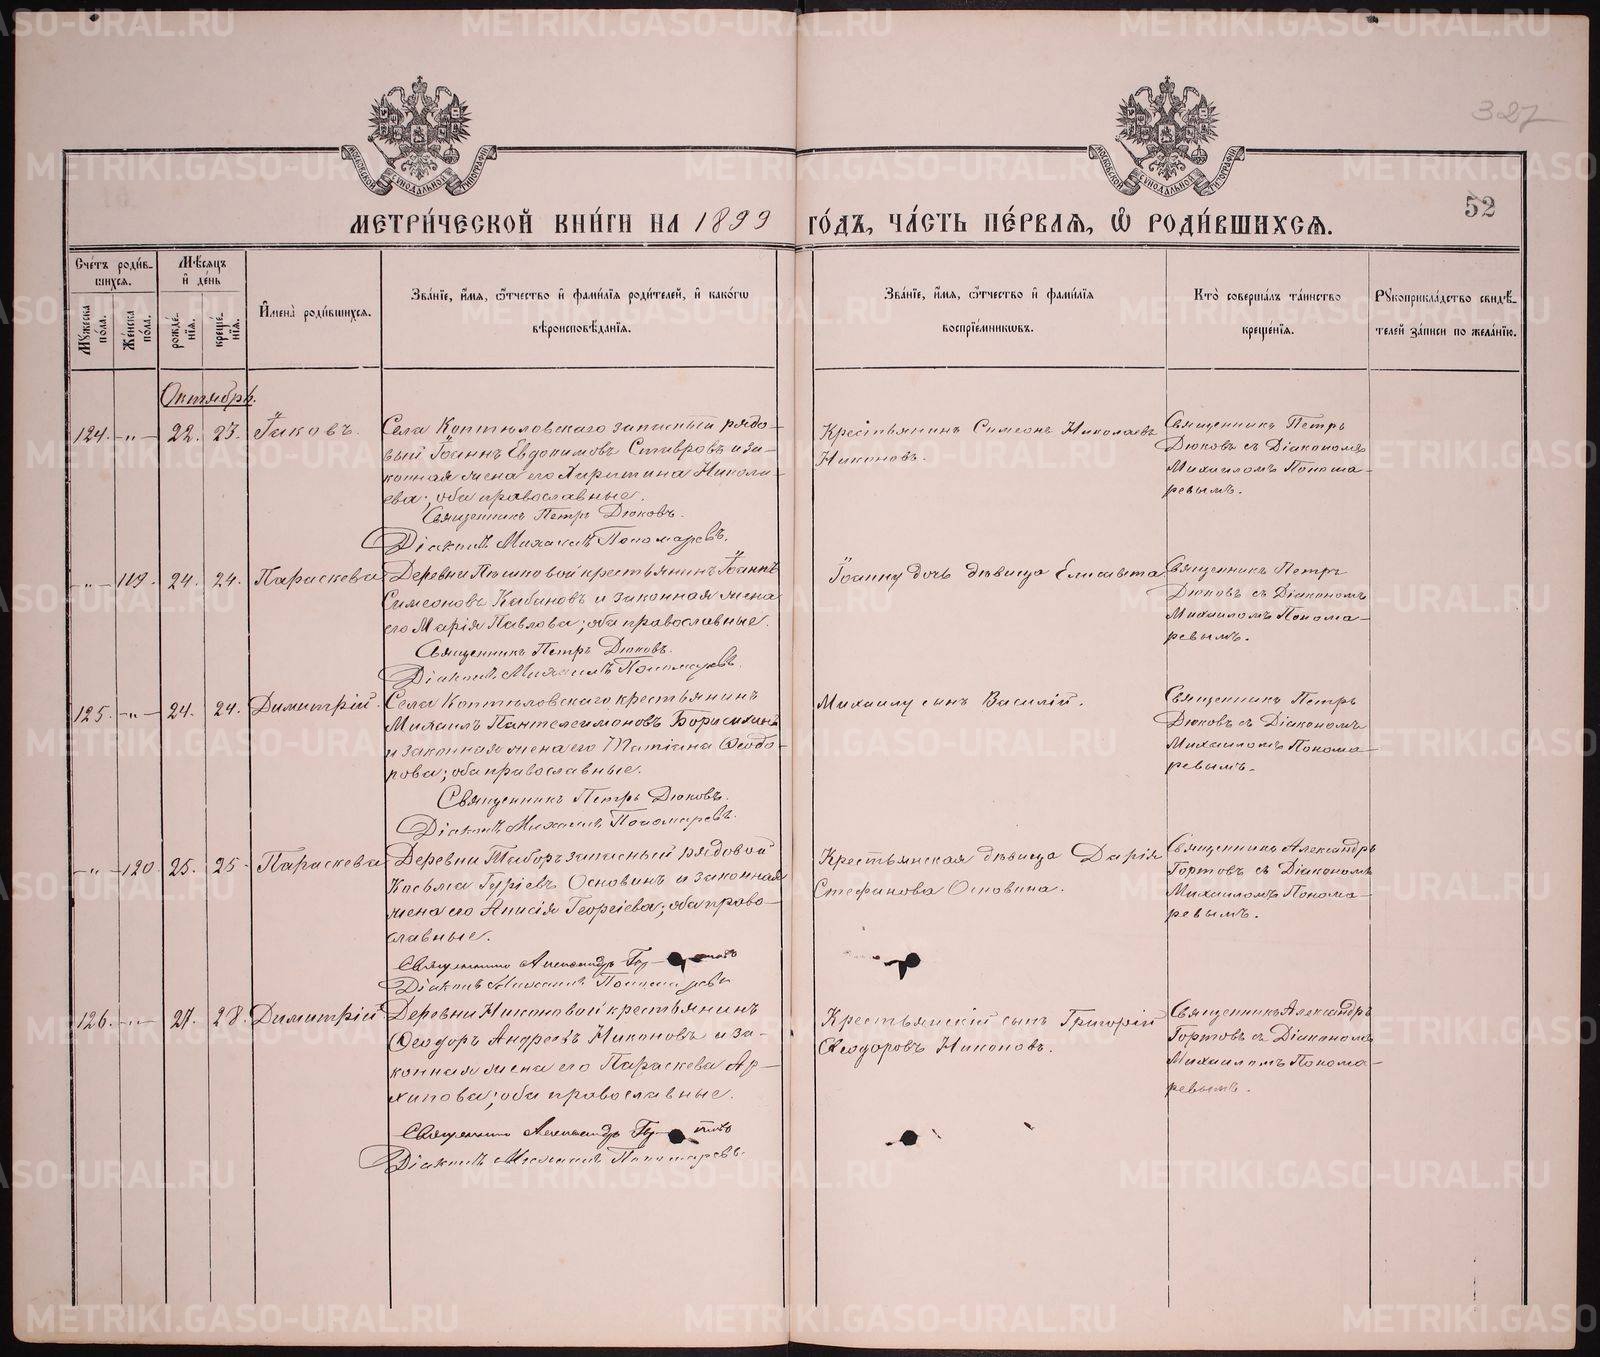 327
52
МЕТРИ́ЧЕСКОЙ КНИ́ГИ НА 1899 ГО́ДЪ, ЧА́СТЬ ПЕ́РВАЯ, Ѡ РОДИ́ВШИХСЯ.
Сче́тъ роди́вшихся.
Му́жеска по́ла.
Же́нска по́ла.
Мѣ́сяцъ и де́нь
рожде́нїя.
креще́нїя.
Имена̀ роди́вшихся.
Зва́нїе, и́мя, ѻ́тчество и фами́лїя роди́телей, и како́гѡ
вѣроисповѣ́данїя.
Зва́нїе, и́мя, ѻ́тчество и фами́лїя
воспрїе́мникѡвъ.
Кто̀ соверша́лъ та́инство
креще́нїя.
Рꙋкоприкла́дство свидѣ́-
телей за́писи по жела́нїю.
Октябрь.
124. -"- 22. 23. Іаковъ.
Села Коптяловскаго запасный рядо-
вый Іоаннъ Евдокимовъ Ставровъ и за-
конная жена его Харитина Никола-
ева; оба православные.
Священникъ Петръ Дюковъ.
Діаконъ Михаилъ Пономаревъ.
Крестьянинъ Симеонъ Николаевъ
Никоновъ.
Священникъ Петръ
Дюковъ съ Діакономъ
Михаиломъ Понома-
ревымъ.
-"- 119. 24. 24. Параскева
Деревни крестьянинъ Іоаннъ
Симеоновъ Кабановъ и законная жена
его Марія Павлова; оба православные.
Священникъ Петръ Дюковъ.
Діаконъ Михаилъ Пономаревъ.
Іоанну дочь дѣвица Елисавета
Священникъ Петръ
Дюковъ съ Діакономъ
Михаиломъ Понома-
ревымъ.
125. -"- 24. 24. Димитрій.
Села Коптяловскаго крестьянинъ
Михаилъ Пантелеимоновъ Борисихинъ
и законная жена его Татіана Ѳеодо-
рова; оба православные.
Священникъ Петръ Дюковъ.
Діаконъ Михаилъ Пономаревъ.
Михаилу сынъ Василій.
Священникъ Петръ
Дюковъ съ Діакономъ
Михаиломъ Понома-
ревымъ.
-"- 120. 25. 25. Параскева
Деревни Таборъ запасный рядовой
Косьма Гуріевъ Основинъ и законная
жена его Анисія Георгіева; оба право-
славные.
Священникъ Александръ
Діаконъ Михаилъ Пономаревъ
Крестьянская дѣвица Дарія
Стефанова Основина.
Священникъ Александръ
Гортовъ съ Діакономъ
Михаиломъ Понома-
ревымъ.
126. -"- 27. 28. Димитрій
Деревни Никоновой крестьянинъ
Ѳеодоръ Андреевъ Никоновъ и за-
конная жена его Параскева Ар-
хипова; оба православные.
Священникъ Александръ
Діаконъ Михаилъ Пономаревъ.
Крестьянскій сынъ Григорій
Ѳеодоровъ Никоновъ.
Священникъ Александръ
Гортовъ съ Діакономъ
Михаиломъ Понома-
ревымъ.
METRIKI.GASO-URAL.RU